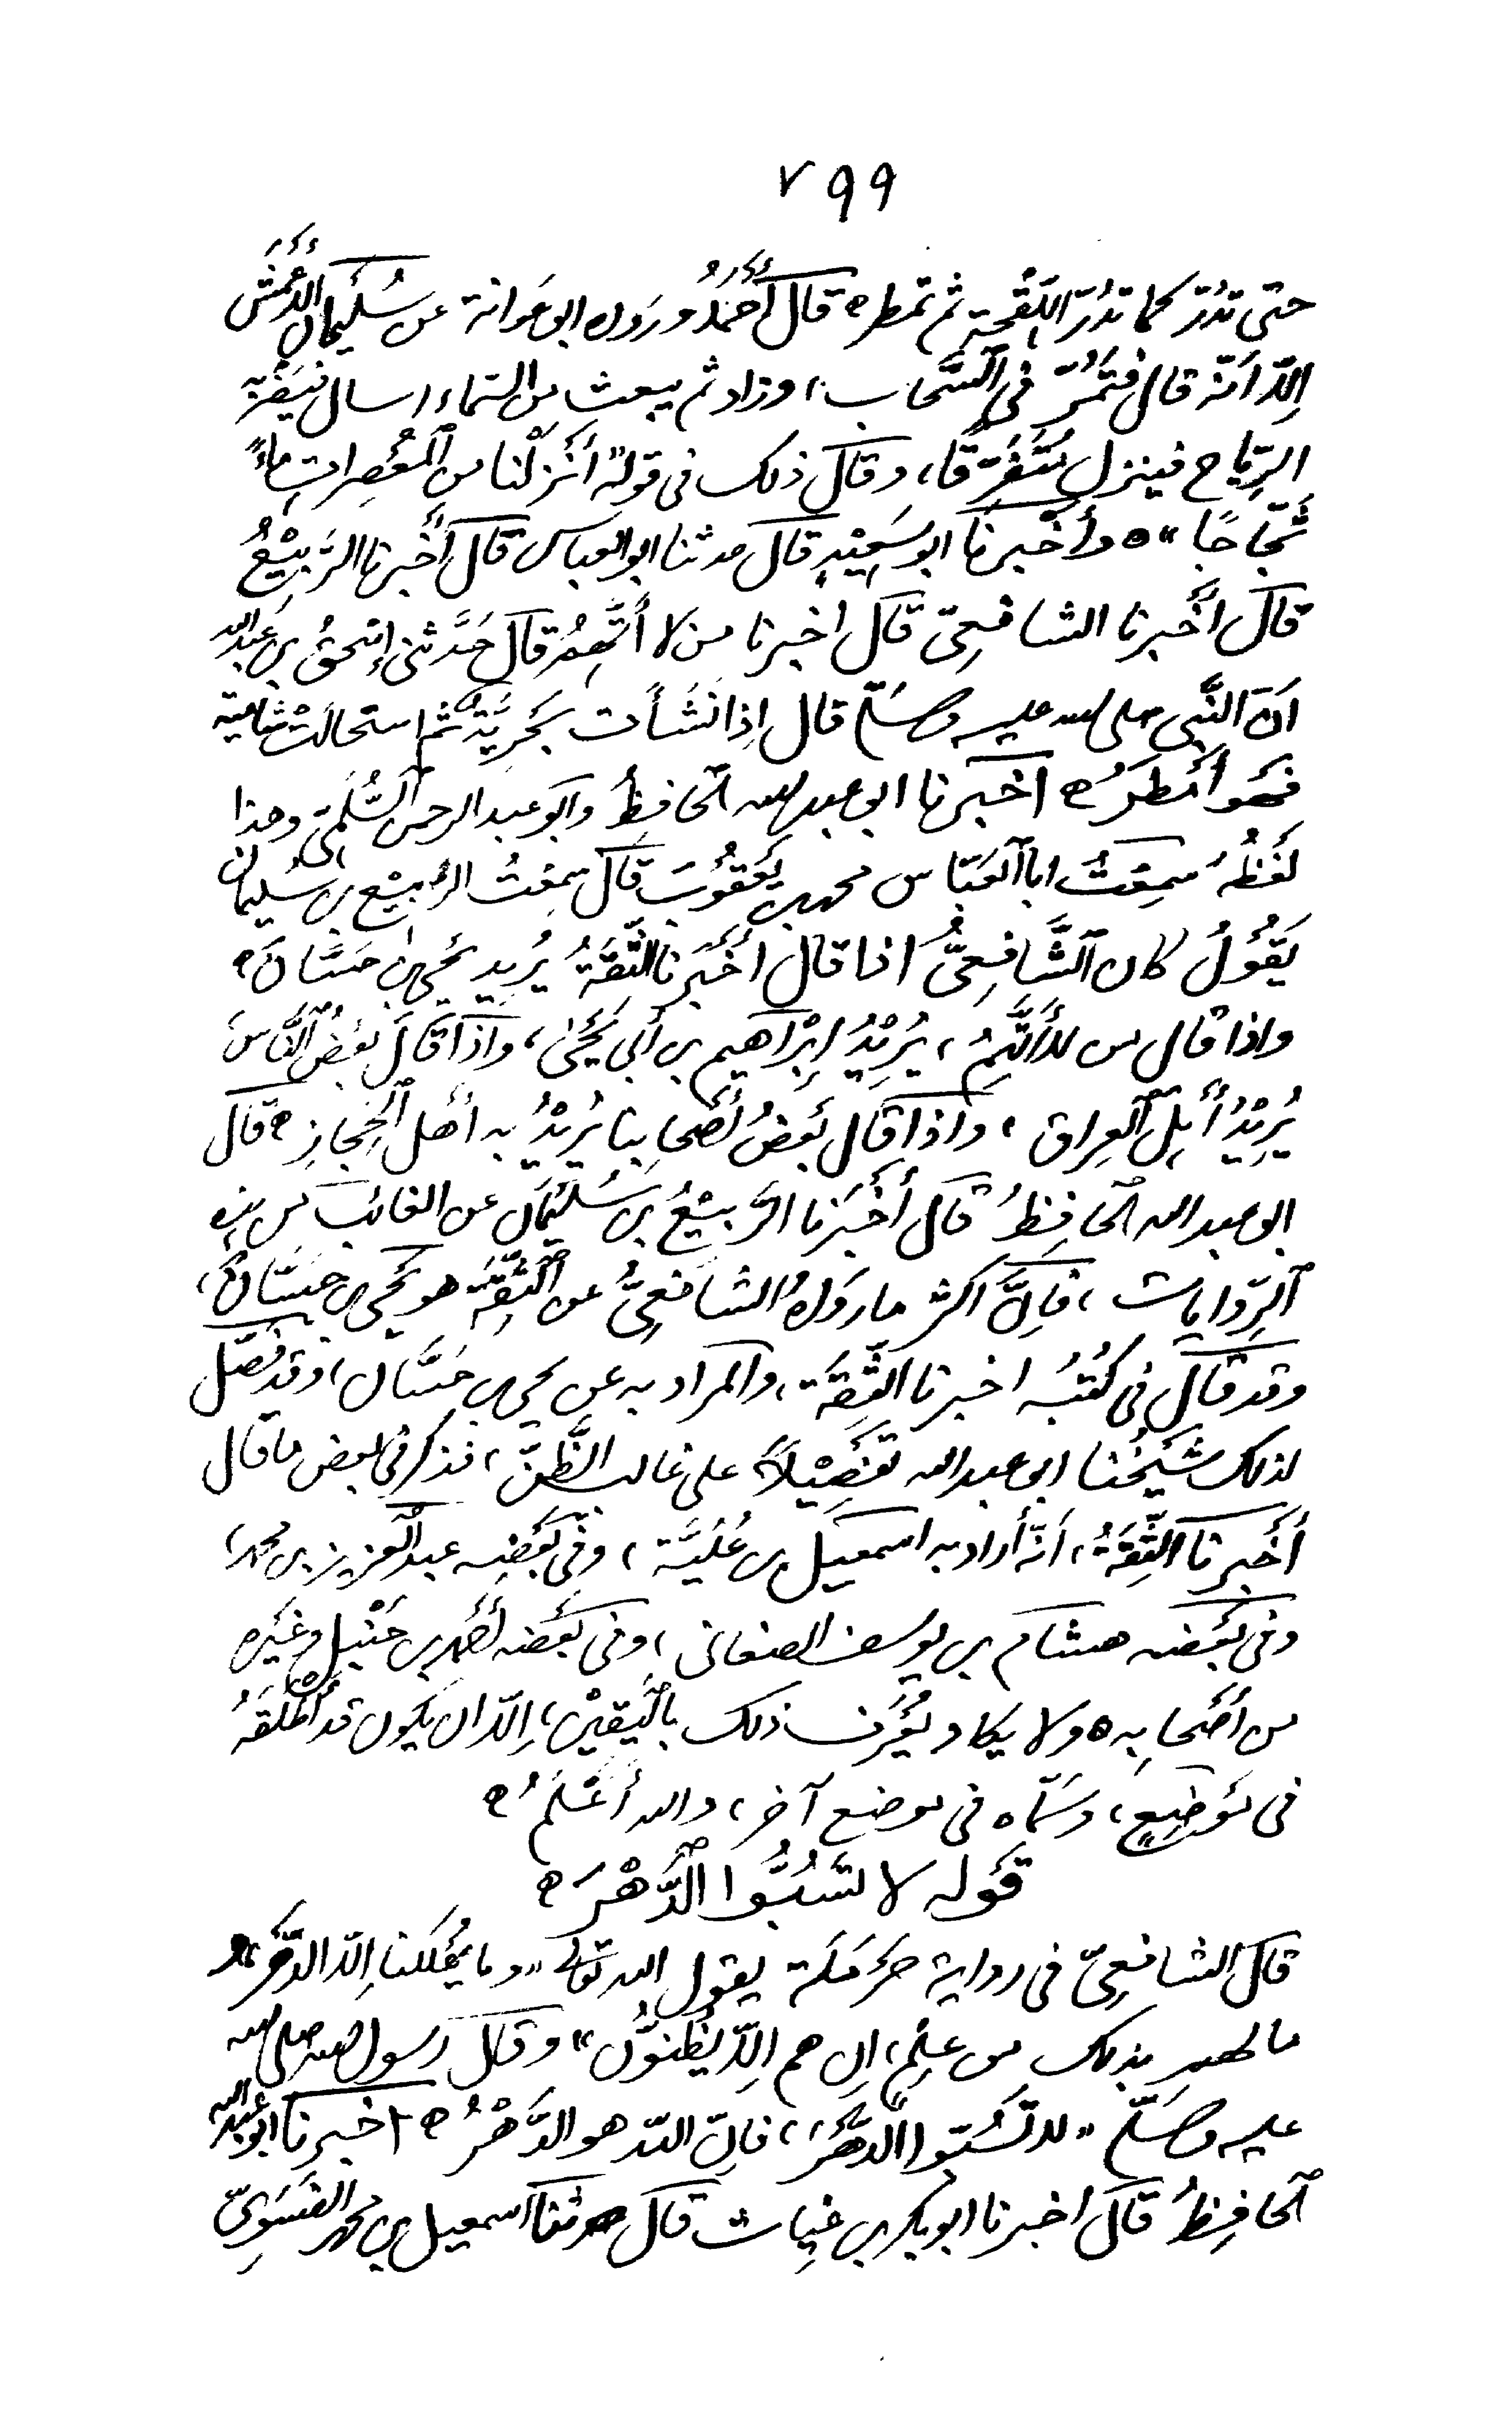 ٧٩٩
حتى تدُرّ كما تدُرّ اللِّقْحة ثم تمطره قال أَحْمَدُ ورَواه ابو عَوانة عن سُلَيْمان الأعْمَش
إلّا أنّه قال فتَمُرّ في السَّحاب، وزاد ثم يبعث من السّماء اسال فيَضْرِبه
الرِّياح فينزل مُتَفَرِّقًا، وقال ذلك في قوله "أنْزَلْنا من المُعْصِرات ماءً
ثَجّاجًا" ه وأخْبرنا ابو سَعِيْدٍ قال حدثنا ابو العباس قال أَخْبرنا الرَّبِيْعُ
قال أَخْبرنا الشافِعِيّ قال اخبرنا من لا أَتَّهِمُ قال حَدَّثني إسْحٰقُ بن عَبد الله
انّ النَّبِي صلى الله عليه وسَلّم قال اِذا نَشَأَت بَحْرِيَّةٌ ثم استحالَتْ شاميّة
فهو أَمْطَرُ ه اخْبَرنا ابو عبد الله الحافِظُ وابو عبد الرحمن السُّلَمِيّ وهذا
لَفْظُهُ سَمِعْتُ ابا العَبّاس محمد بن يَعْقُوْبَ قال سَمِعْتُ الرَّبِيْع بن سُلَيْمان
يَقُوْلُ كان الشَّافِعِيُّ اذا قال أَخْبَرنا الثِّقَةُ يُرِيد يحيى بن حَسّانَ ه
واذا قال من لا أَتَّهِمُ، يُرِيْدُ اِبْرَاهيم بن أبي يَحْيٰى، واذا قالَ بَعْضُ النَّاسَ
يُرِيْدُ أَهْلَ العِراق، واذا قال بَعْضُ أَصْحابِنا يُرِيْدُ به أَهْل الحِجازِ ه قال
ابو عبد الله الحافِظُ قال أَخْبَرَنا الرَّبِيْعُ بن سُلَيْمَان عن الغائب من هذه
الرِّوايات، فإنّ اكثر ما رَواه الشافِعِيُّ عن الثِّقَة هو يَحْيى بن حَسّان،
وقد قال في كُتُبِه اخبرنا الثِّقَة، والمراد به عن يحيى بن حَسَّان، وقد فصّل
لذلك شَيْخُنا ابو عبد الله تَفْصِيْلًا على غالب الظَّنّ، فذكر في بعض ما قال
أَخْبرنا الثِّقَةُ، أنّه أراد به اسمعيل بن عُلَيَّة، وفي بَعْضِه عبد العزيز بن محمد،
وفي بَعْضه هشام بن يوسف الصنعاني، وفي بَعْضه أحمد بن حَنْبل وغَيْره
من أَصْحابِه ه ولا يكاد يُعْرَف ذلك باليَقِيْنِ، إلّا ان يكون قد أَطْلَقَهُ
في مَوْضِعٍ، وسَمّاه في موضع آخر، والله أَعْلَمُ ه
قَوْله لا تَسُبُّوا الدَّهْرَ ه
قال الشافعيّ في رواية حَرْمَلَة يقول الله تعالى "وما يُهْلِكنا إلّا الدَّهْرُ
ما لهم بذلك من عِلْمٍ، اِن هم إلّا يَظُنُّونَ" وقال رسول الله صلى الله
عليه وسَلّم "لا تَسُبّوا الدَّهْرَ، فإنّ الله هو الدَّهْرُ ه اخبرنا ابو عبد الله
الحافِظُ قال أخبرنا ابو بكر بن غياث قال حدثنا اسمعيل بن محمد الفَسَوِيّ